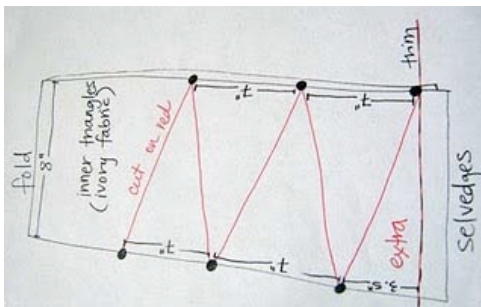 fold
8"
inner triangles
(ivory fabric)
cut on red
7"
7"
7"
7"
3.5"
extra
trim
selvedges